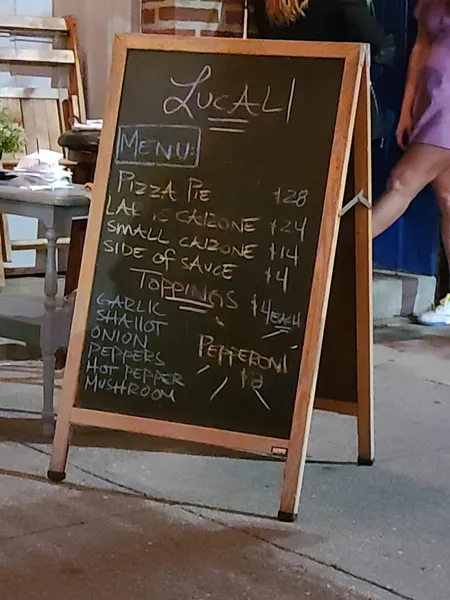 LUCALI
MENU:
PIZZA PIE $28
CALZONE $24
SMALL CALZONE $14
SIDE OF SAUCE $4
TOPPINGS $4 EACH
GARLIC
SHALLOT
ONION
PEPPERS
HOT PEPPER
MUSHROOM
PEPPERONI